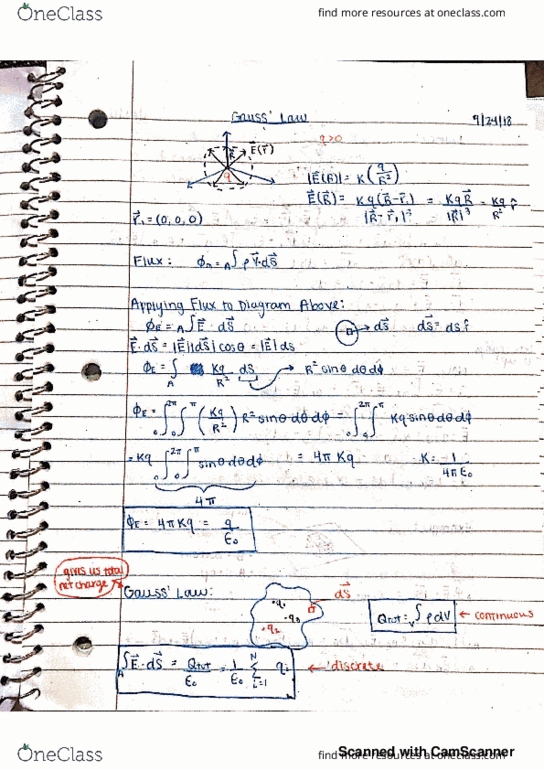 OneClass
find more resources at oneclass.com
Gauss' Law
9/24/18
q>0
E⃗(r⃗)
R
q
|E⃗(R)| = K(q/R²)
E⃗(R⃗) = Kq(R⃗-r⃗₁)/|R⃗-r⃗₁|³ = KqR⃗/|R⃗|³ = Kq/R² r̂
r⃗₁ = (0,0,0)
Flux: Φₘ = A∫ρV⃗·dS⃗
Applying Flux to Diagram Above:
Φ_E = A∫E⃗·dS⃗
→ dS⃗ dS⃗ = ds r̂
E⃗·dS⃗ = |E⃗||dS⃗|cosθ = |E⃗|ds
Φ_E = ∫_A Kq/R² ds → R² sinθ dθ dϕ
Φ_E = ∫₀^2π ∫₀^π (Kq/R²) R² sinθ dθ dϕ = ∫₀^2π ∫₀^π Kq sinθ dθ dϕ
= Kq ∫₀^2π ∫₀^π sinθ dθ dϕ = 4π Kq K = 1/4πε₀
4π
Φ_E = 4πKq = q/ε₀
gives us total
net charge
Gauss' Law:
dS⃗
q₁
q₃
q₂
Q_TOT = ᵥ∫ρdV ← continuous
A∫E⃗·dS⃗ = Q_TOT/ε₀ = 1/ε₀ Σ_{i=1}^N qᵢ ← discrete
OneClass
find more resources at oneclass.com
Scanned with CamScanner